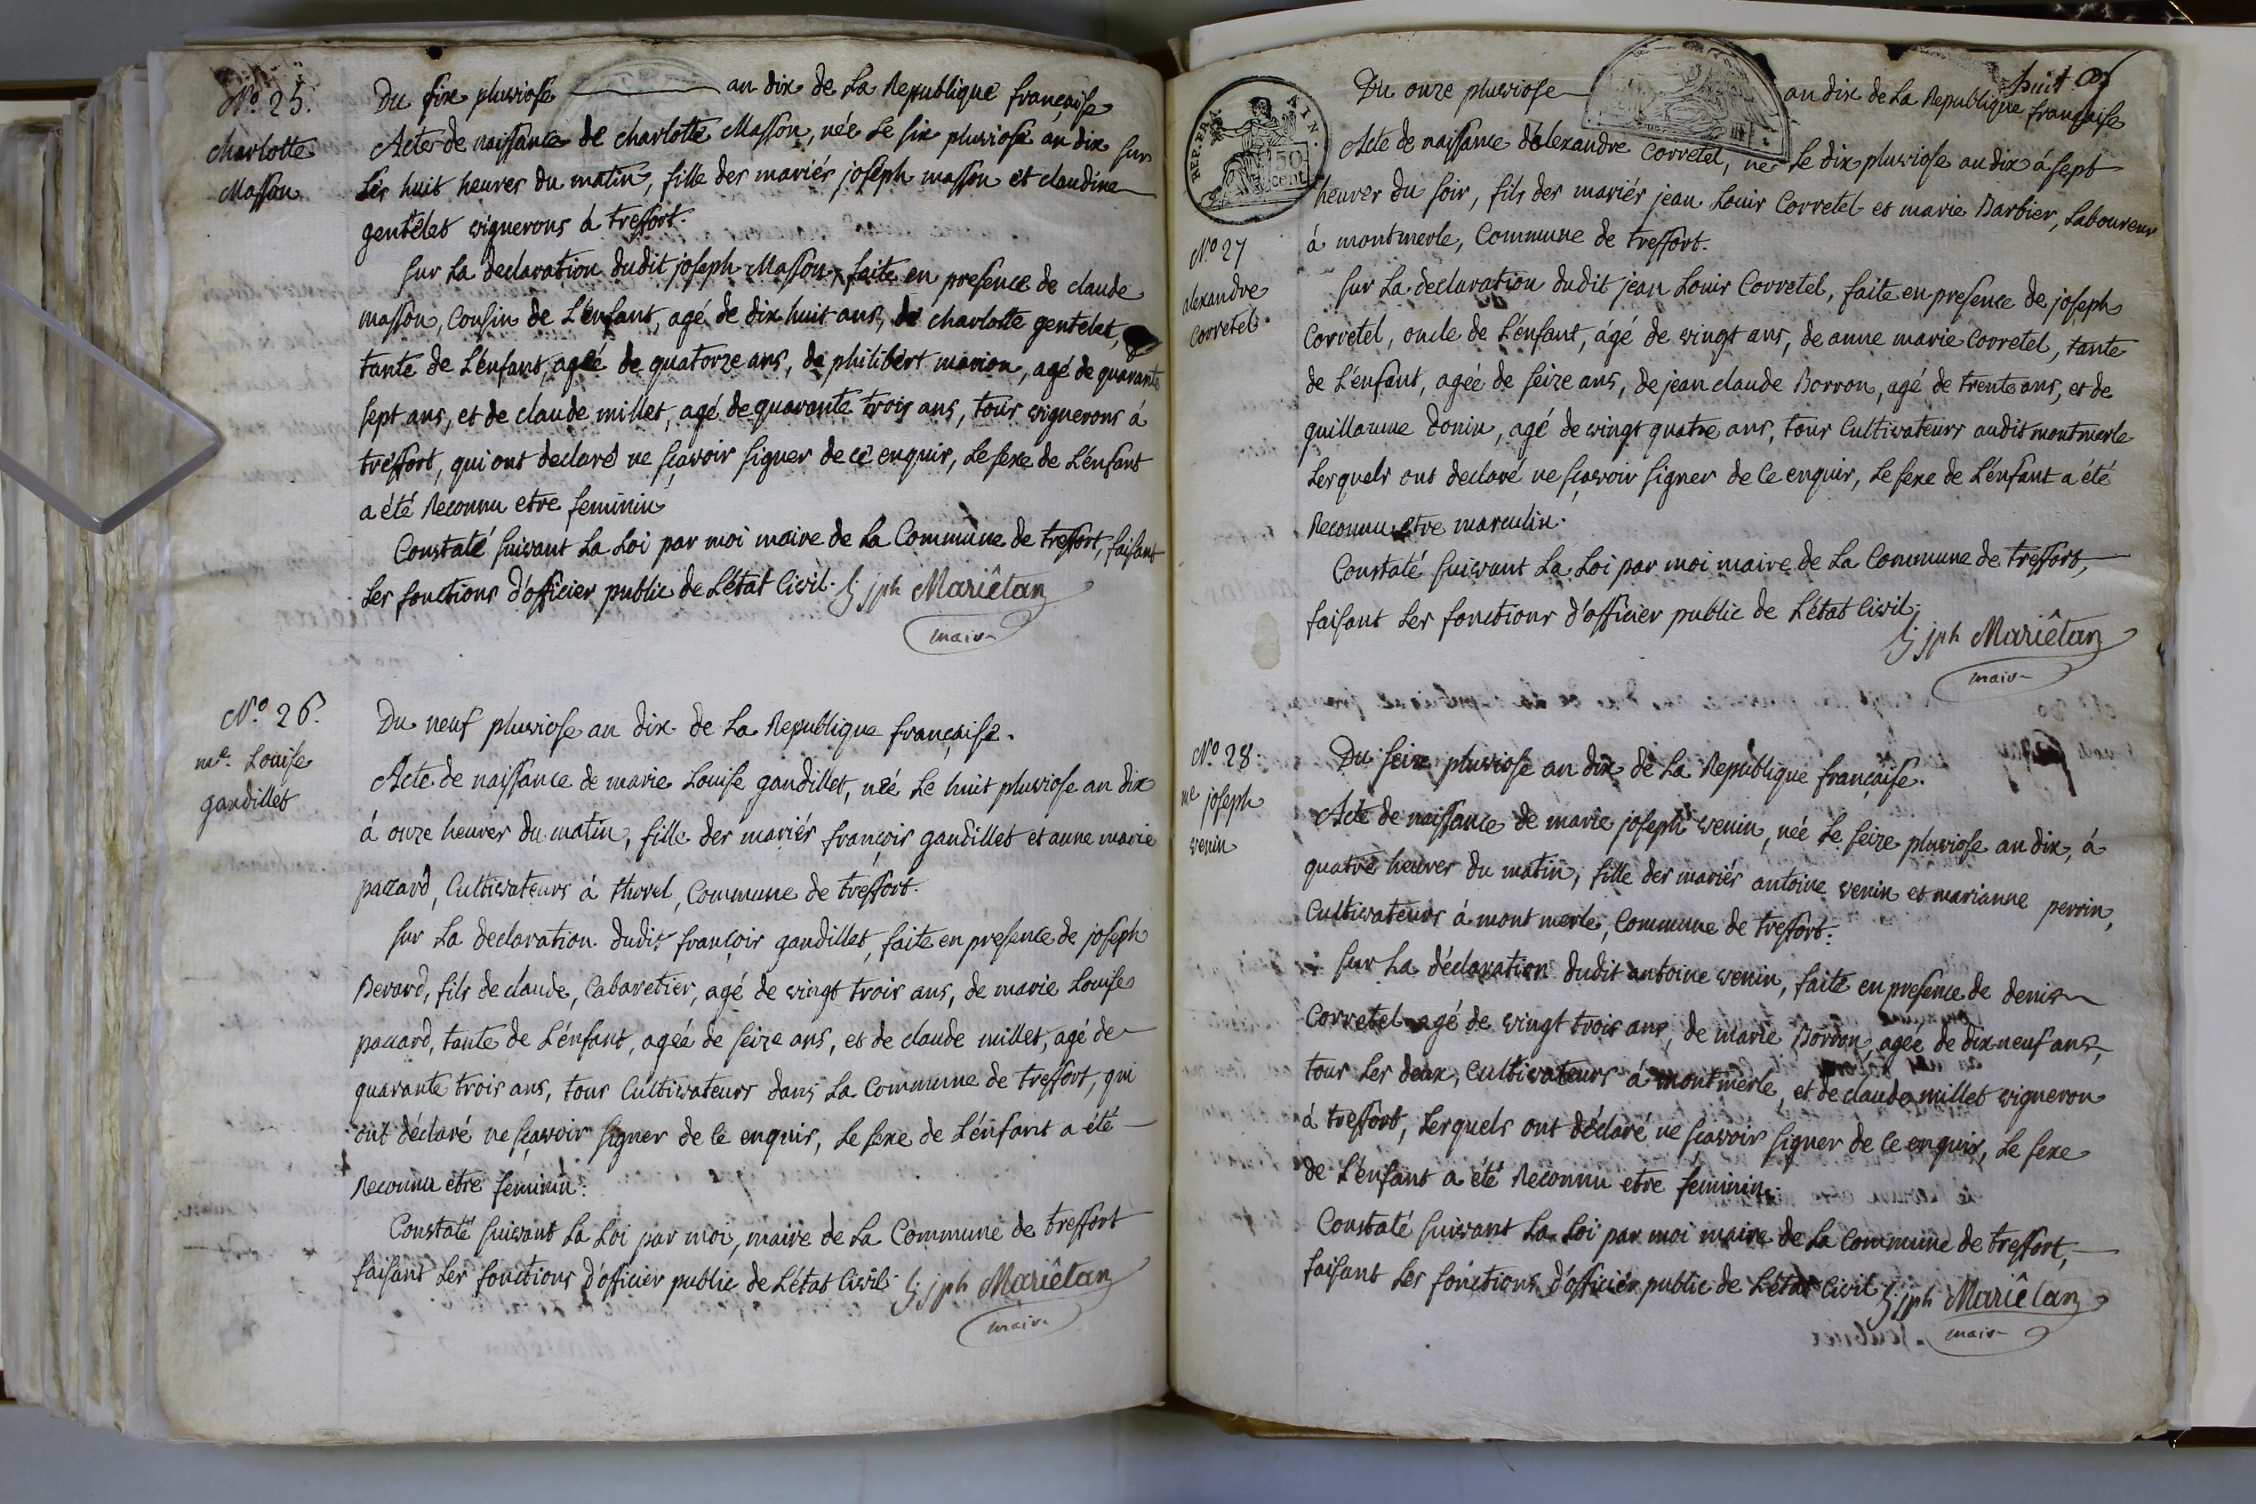 N.o 25.
charlotte
Masson
Du six pluviose an dix de La Republique française
Acte de naissance de charlotte Masson, née Le six pluviose an dix sur
Les huit heures du matin, fille des mariés joseph masson et claudine
gentelet vignerons à treffort.
Sur La declaration dudit joseph Masson, faite en presence de claude
masson, Cousin de L'enfant, agé de dix huit ans, de charlotte gentelet,
tante de L'enfant, agée de quatorze ans, de philibert marion, agé de quarante
sept ans, et de claude millet, agé de quarante trois ans, tous vignerons à
treffort, qui ont declaré ne sçavoir signer de ce enquis, Le sexe de L'enfant
a été Reconnu etre feminin
Constaté suivant La Loi par moi maire de La Commune de treffort, faisant
Les fonctions d'officier public de L'état Civil. jph Mariêtan
maire
N.o 26.
m.e Louise
gandillet
Du neuf pluviose an dix de La Republique française.
Acte de naissance de marie Louise gandillet, née Le huit pluviose an dix
à onze heures du matin, fille des mariés françois gandillet et anne marie
paccard, Cultivateurs à thorel, Commune de treffort.
sur La declaration dudit françois gandillet, faite en presence de joseph
Berard, fils de claude, Cabaretier, agé de vingt trois ans, de marie Louise
paccard, tante de L'enfant, agée de seize ans, et de claude millet, agé de
quarante trois ans, tous Cultivateurs dans La Commune de treffort, qui
ont déclaré ne sçavoir signer de ce enquis, Le sexe de L'enfant a été
Reconnu etre feminin.
Constaté suivant La Loi par moi, maire de La Commune de treffort
faisant Les fonctions d'officier public de L'état Civil. jph Mariêtan
maire
huit
REP. FRA. AIN.
50
cent
N.o 27
alexandre
Corretel.
Du onze pluviose an dix de La Republique française
Acte de naissance d'alexandre Corretel, né Le dix pluviose an dix à sept
heures du soir, fils des mariés jean Louis Corretel et marie Barbier, Laboureur
à montmerle, Commune de treffort.
sur La declaration dudit jean Louis Corretel, faite en presence de joseph
Corretel, oncle de L'enfant, agé de vingt ans, de anne marie Corretel, tante
de L'enfant, agée de seize ans, de jean claude Borron, agé de trente ans, et de
guillaume Donin, agé de vingt quatre ans, tous Cultivateurs audit montmerle
Lesquels ont declaré ne sçavoir signer de Ce enquis, Le sexe de L'enfant a été
Reconnu etre masculin.
Constaté suivant La Loi par moi maire de La Commune de treffort,
faisant Les fonctions d'officier public de L'état Civil.
jph Mariêtan
maire
N.o 28.
me joseph
venin
Du seize pluviose an dix de La Republique française.
Acte de naissance de marie joseph venin, née Le seize pluviose an dix, à
quatre heures du matin, fille des mariés antoine venin et marianne perrin,
Cultivateurs à mont merle, Commune de treffort.
sur La déclaration dudit antoine venin, faite en presence de denis
Corretel agé de vingt trois ans, de marie Borron, agée de dix neuf ans,
tous Les deux, Cultivateurs à montmerle, et de claude millet vigneron
à treffort, Lesquels ont déclaré ne sçavoir signer de Ce enquis, Le sexe
de L'enfant a été Reconnu etre feminin.
Constaté suivant La Loi par moi maire de La Commune de treffort,
faisant Les fonctions d'officier public de L'état Civil jph Mariêtan
maire